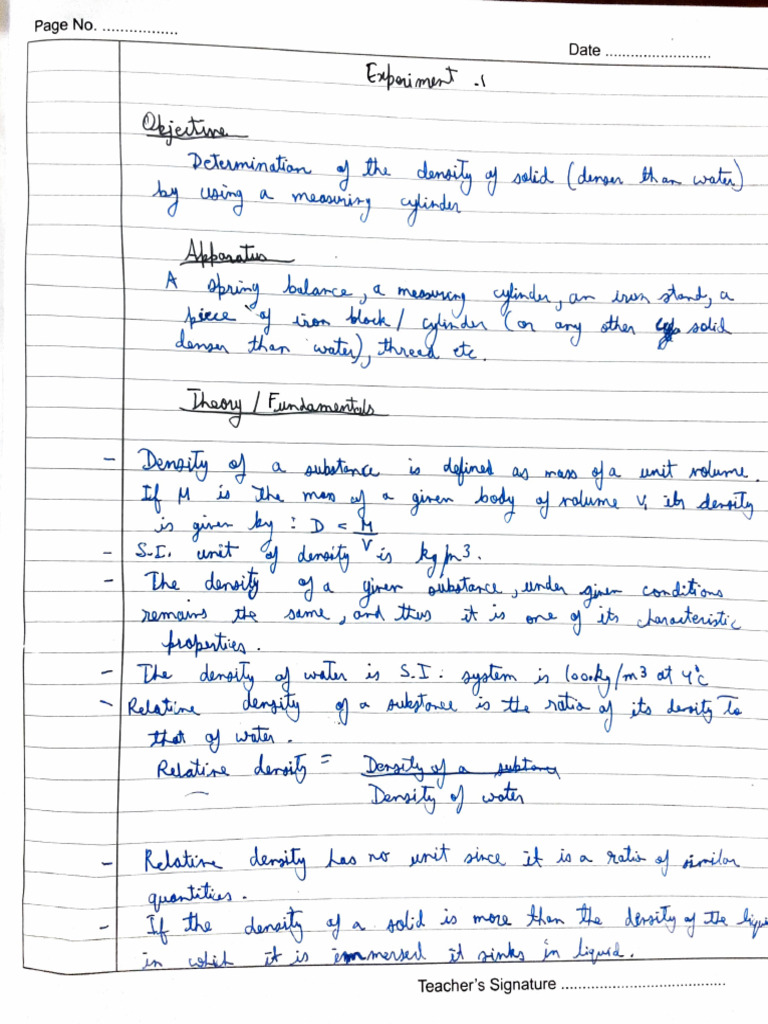 Page No. .................
Date ..........................
Experiment .1
Objective
Determination of the density of solid (denser than water)
by using a measuring cylinder
Apparatus
A spring balance, a measuring cylinder, an iron stand, a
piece of iron block / cylinder (or any other solid
denser than water), thread etc.
Theory / Fundamentals
- Density of a substance is defined as mass of a unit volume.
If M is the mass of a given body of volume V, its density
is given by : D < M
V
- S.I. unit of density is kg/m3.
- The density of a given substance, under given conditions
remains the same, and thus it is one of its characteristic
properties.
- The density of water is S.I. system is 1000kg/m3 at 4°c
- Relative density of a substance is the ratio of its density to
that of water.
Relative density = Density of a substance
Density of water
- Relative density has no unit since it is a ratio of similar
quantities.
- If the density of a solid is more than the density of the liqui
in which it is immersed it sinks in liquid.
Teacher's Signature .....................................